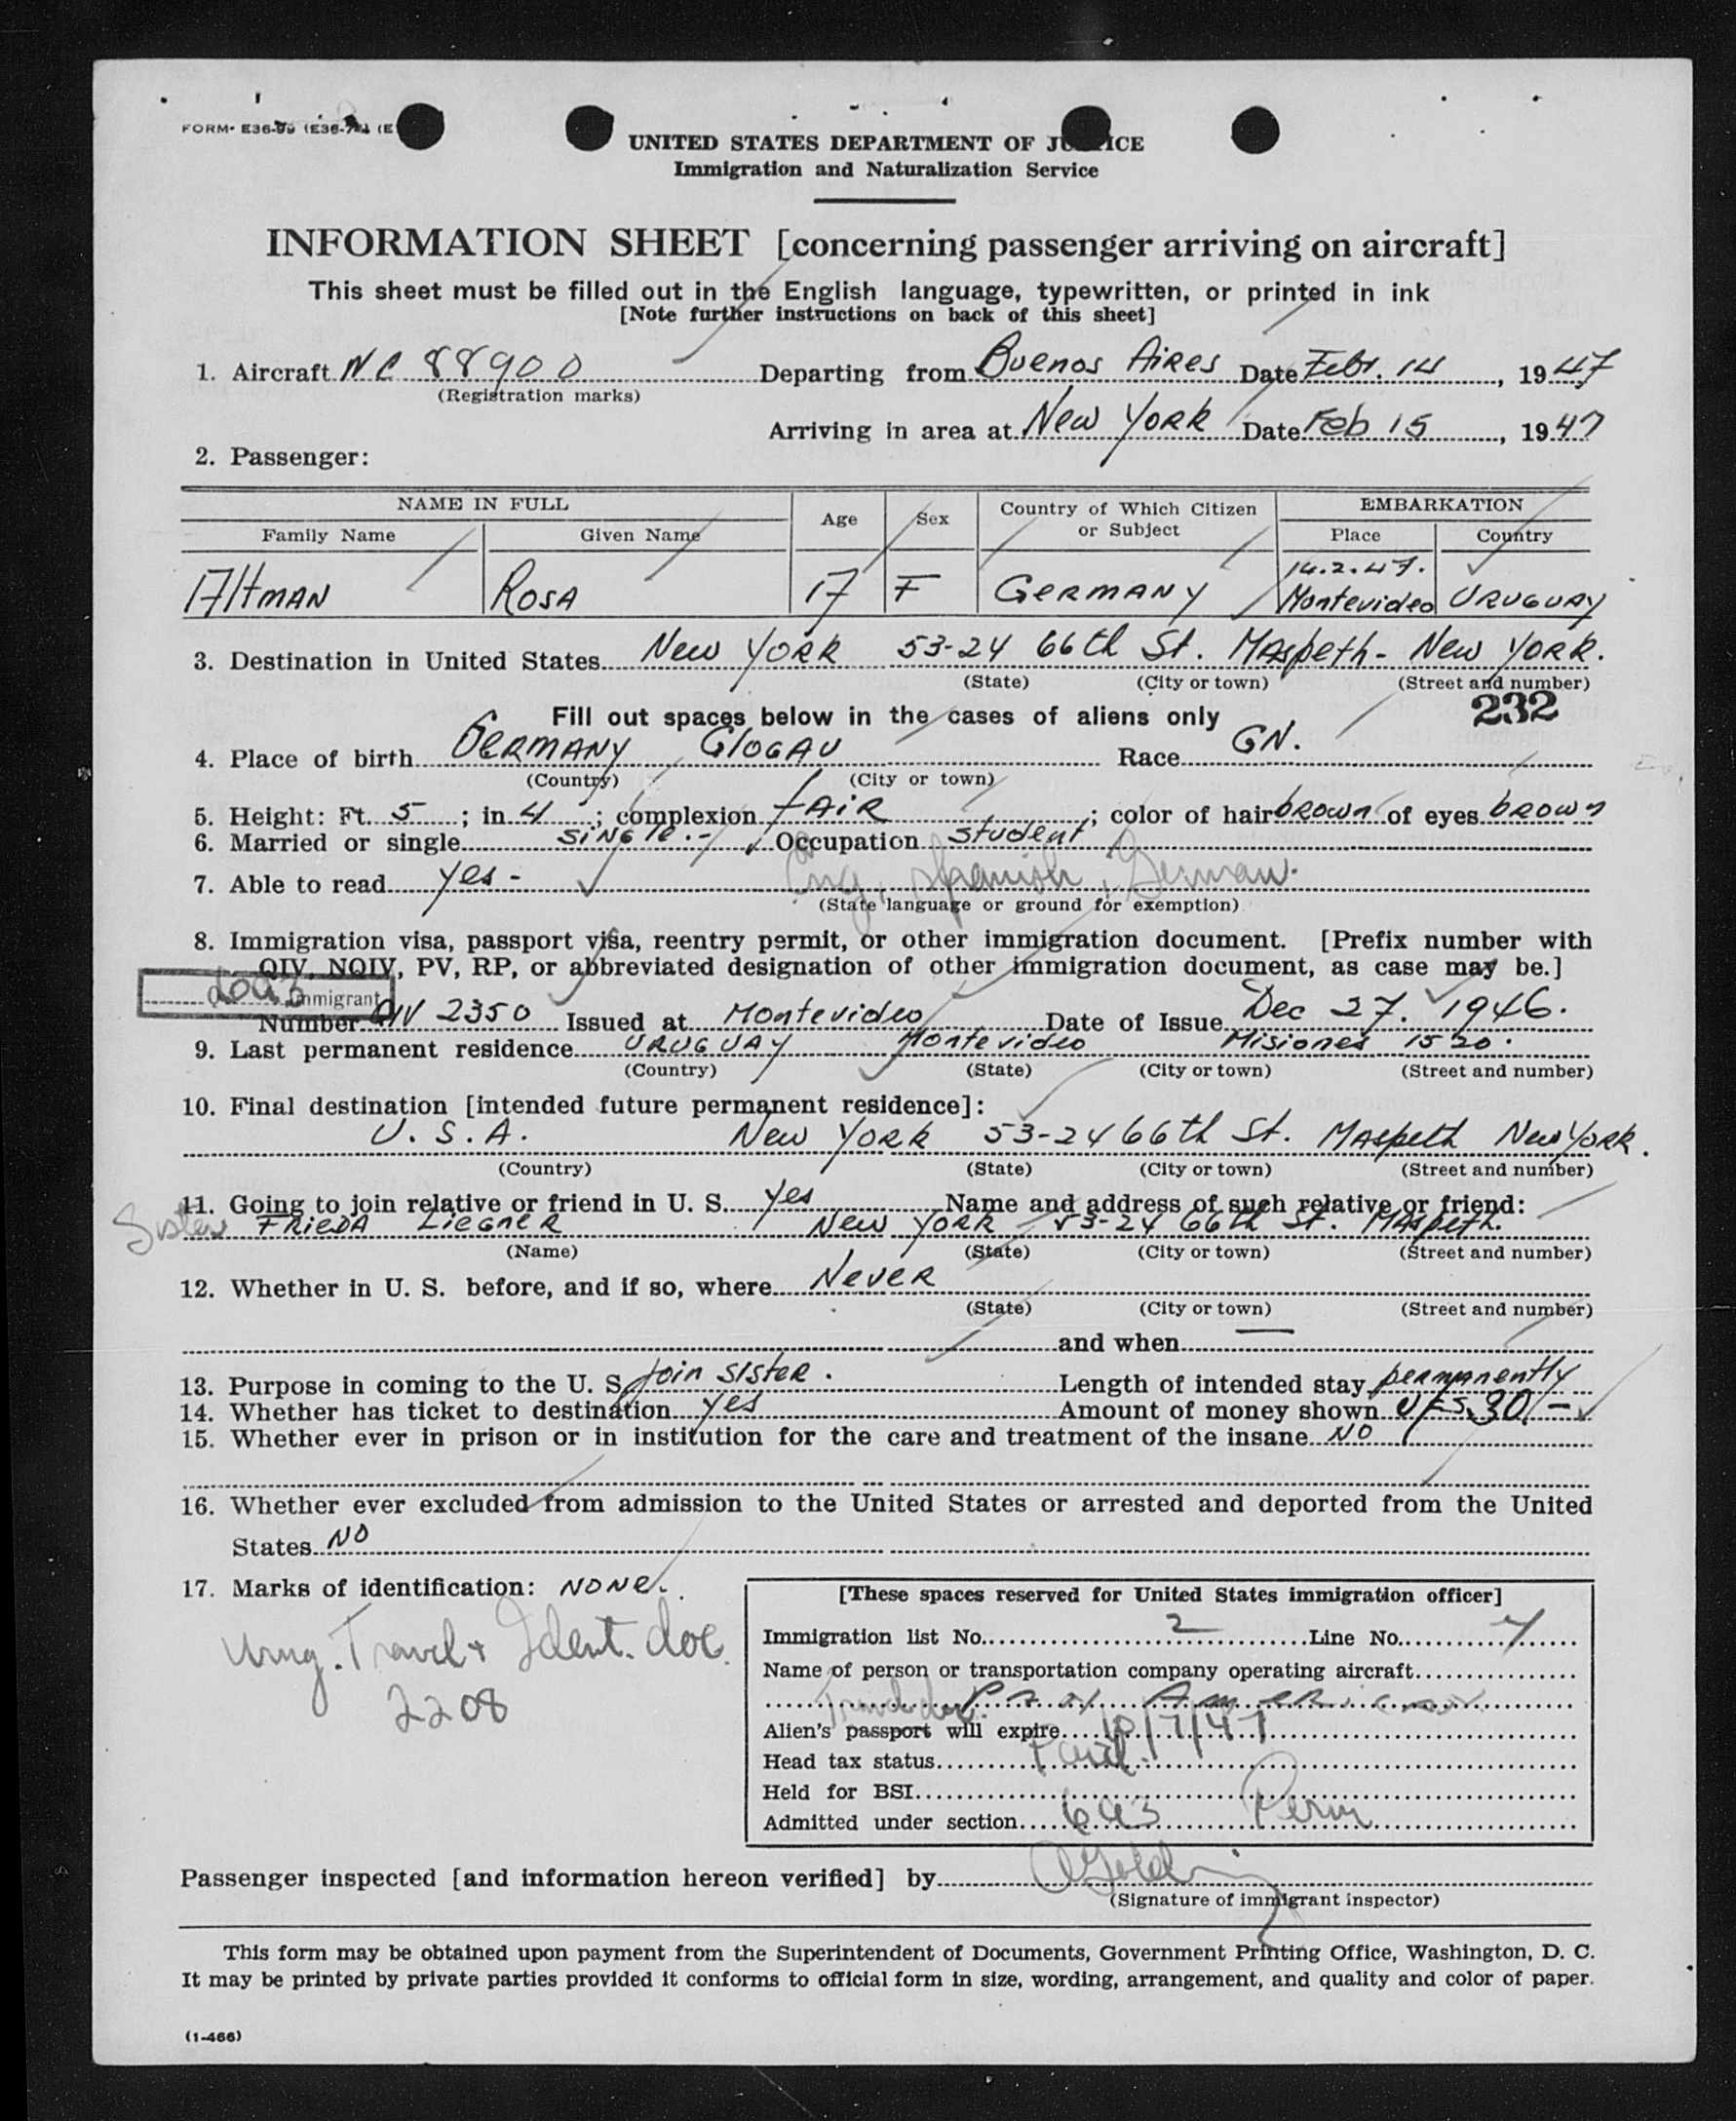 FORM- E36-
UNITED STATES DEPARTMENT OF JUSTICE
Immigration and Naturalization Service
INFORMATION SHEET [concerning passenger arriving on aircraft]
This sheet must be filled out in the English language, typewritten, or printed in ink
[Note further instructions on back of this sheet]
1. Aircraft NC 88900 Departing from Buenos Aires Date Feb. 14, 1947
(Registration marks)
Arriving in area at New York Date Feb 15, 1947
2. Passenger:
NAME IN FULL Age Sex Country of Which Citizen or Subject EMBARKATION
Family Name Given Name Place Country
14.2.47.
Altman Rosa 17 F Germany Montevideo Uruguay
3. Destination in United States New York 53-24 66th St. Maspeth - New York.
(State) (City or town) (Street and number)
232
Fill out spaces below in the cases of aliens only
4. Place of birth Germany Glogau Race GN.
(Country) (City or town)
5. Height: Ft. 5; in. 4; complexion fair; color of hair brown of eyes brown
6. Married or single single.- Occupation student
7. Able to read yes - Eng, Spanish, German.
(State language or ground for exemption)
8. Immigration visa, passport visa, reentry permit, or other immigration document. [Prefix number with
QIV, NQIV, PV, RP, or abbreviated designation of other immigration document, as case may be.]
Immigrant
Number QIV 2350 Issued at Montevideo Date of Issue Dec 27. 1946.
9. Last permanent residence Uruguay Montevideo Misiones 1520.
(Country) (State) (City or town) (Street and number)
10. Final destination [intended future permanent residence]:
U.S.A. New York 53-24 66th St. Maspeth New York.
(Country) (State) (City or town) (Street and number)
11. Going to join relative or friend in U. S. Yes Name and address of such relative or friend:
Sister Frieda Liegner New York 53-24 66th St. Maspeth.
(Name) (State) (City or town) (Street and number)
12. Whether in U. S. before, and if so, where Never
(State) (City or town) (Street and number)
and when —
13. Purpose in coming to the U. S. join sister. Length of intended stay permanently
14. Whether has ticket to destination yes Amount of money shown 30/-
15. Whether ever in prison or in institution for the care and treatment of the insane No
16. Whether ever excluded from admission to the United States or arrested and deported from the United
States No
17. Marks of identification: None.
Urug. Travel + Ident. doc.
2208
[These spaces reserved for United States immigration officer]
Immigration list No. 2 Line No. 4
Name of person or transportation company operating aircraft
Pan American
Travel doc.
Alien's passport will expire 10/7/47
Head tax status Paid.
Held for BSI
Admitted under section 6a3 Perm
Passenger inspected [and information hereon verified] by
(Signature of immigrant inspector)
This form may be obtained upon payment from the Superintendent of Documents, Government Printing Office, Washington, D. C.
It may be printed by private parties provided it conforms to official form in size, wording, arrangement, and quality and color of paper.
(1-466)